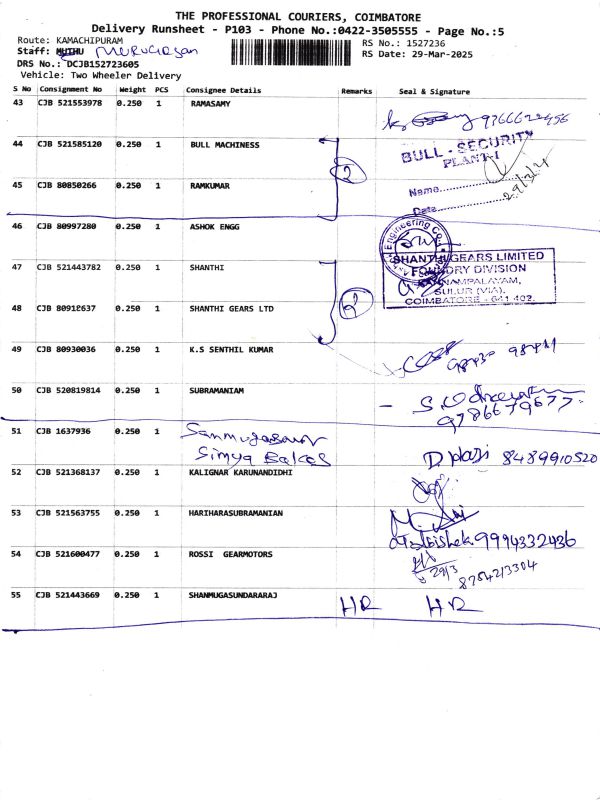 THE PROFESSIONAL COURIERS, COIMBATORE
Delivery Runsheet - P103 - Phone No.:0422-3505555 - Page No.:5
Route: KAMACHIPURAM
RS No.: 1527236
Staff: MUTHU MURUGESAN
RS Date: 29-Mar-2025
DRS No.: DCJB152723605
Vehicle: Two Wheeler Delivery
S No Consignment No Weight PCS Consignee Details Remarks Seal & Signature
43 CJB 521553978 0.250 1 RAMASAMY
44 CJB 521585120 0.250 1 BULL MACHINESS 2 BULL - SECURITY
PLANT-I
45 CJB 80850266 0.250 1 RAMKUMAR Name
Date 29/3/
46 CJB 80997280 0.250 1 ASHOK ENGG Engineering Co.
47 CJB 521443782 0.250 1 SHANTHI SHANTHI GEARS LIMITED
FOUNDRY DIVISION
KANNAMPALAYAM,
SULUR (VIA),
COIMBATORE - 641 402.
48 CJB 80912637 0.250 1 SHANTHI GEARS LTD 2
49 CJB 80930036 0.250 1 K.S SENTHIL KUMAR
50 CJB 520819814 0.250 1 SUBRAMANIAM
9786679677
51 CJB 1637936 0.250 1 8489910520
52 CJB 521368137 0.250 1 KALIGNAR KARUNANDIDHI
53 CJB 521563755 0.250 1 HARIHARASUBRAMANIAN
9994332436
54 CJB 521600477 0.250 1 ROSSI GEARMOTORS
29/3 8754213304
55 CJB 521443669 0.250 1 SHANMUGASUNDARARAJ HR HR